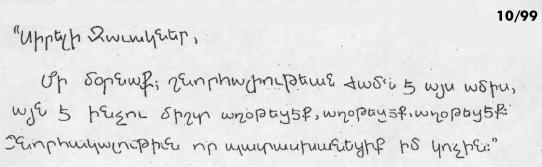 10/99
"Սիրելի Զաւակներ,
Մի մօրնաք; շնորհալիութեան ժամն 5 այս ամիս,
այն 5 ինչու միշտ աղօթեցէք, աղօթեցէք, աղօթեցէք:
Շնորհակալութիւն որ պատասխանեցիք իմ կոչին:"